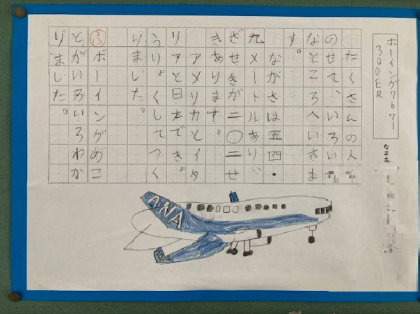 ボーイング767ー
300ER
なまえ
たくさんの人
のせて、いろい
なところへいきま
す。
ながさは五四・
九メートルあり、
ざせきが二〇二せ
きあります。
アメリカとイタ
リアと日本できょ
うりょくしてつく
りました。
ボーイングのこ
とがいろいろわか
りました。
ANA